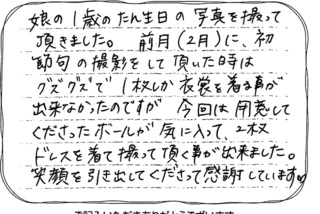 娘の1歳のたん生日の写真を撮って
頂きました。 前月(2月)に、初
節句の撮影をして頂いた時は
グズグズで1枚しか衣裳を着る事が
出来なかったのですが 今回は用意して
くださったボールが気に入って、2枚
ドレスを着て撮って頂く事が出来ました。
笑顔を引き出してくださって感謝しています♡
ご記入いただきありがとうございます